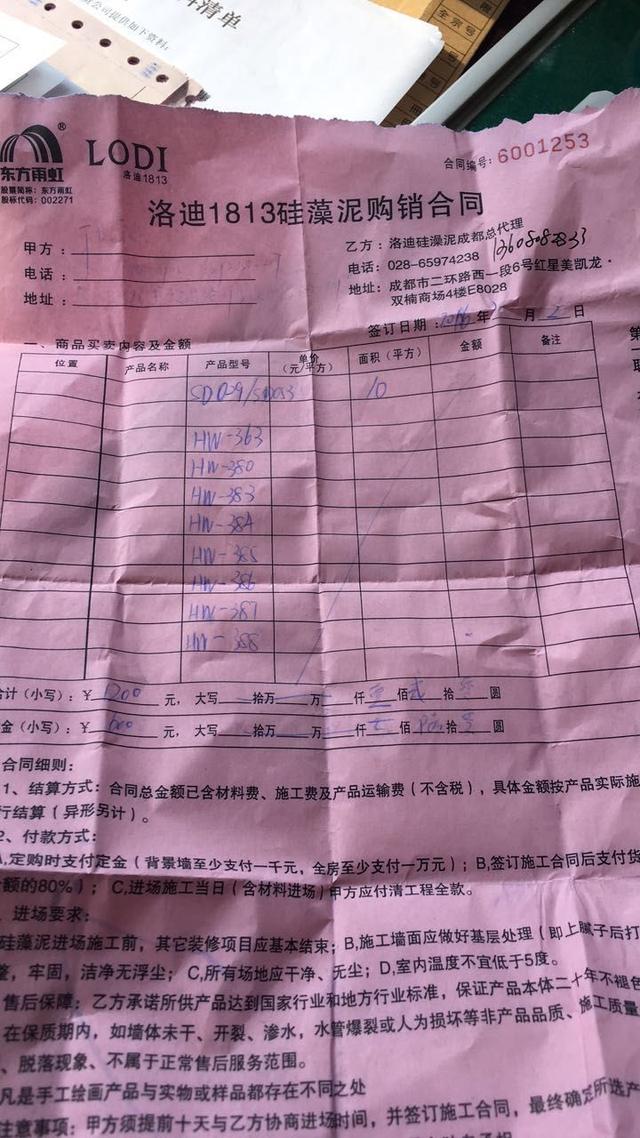 料清单
公司提供如下资料:
全宗号
东方雨虹®
股票简称:东方雨虹
股标代码:002271
LODI
洛迪1813
合同编号:6001253
洛迪1813硅藻泥购销合同
甲方:
电话:
地址:
乙方:洛迪硅藻泥成都总代理
电话:028-65974238
地址:成都市二环路西一段6号红星美凯龙·
双楠商场4楼E8028
签订日期:2016年 月2日
一、商品买卖内容及金额
位置 产品名称 产品型号 单价(元/平方) 面积(平方) 金额 备注
10
HW-363
HW-380
HW-383
HW-384
HW-385
HW-386
HW-387
HW-388
合计(小写):¥ 元,大写 拾万 万 仟 佰 拾 圆
金(小写):¥ 元,大写 拾万 万 仟 佰 拾 圆
合同细则:
1、结算方式:合同总金额已含材料费、施工费及产品运输费(不含税),具体金额按产品实际施
行结算(异形另计)。
2、付款方式:
A,定购时支付定金(背景墙至少支付一千元,全房至少支付一万元);B,签订施工合同后支付货
金额的80%);C,进场施工当日(含材料进场)甲方应付清工程全款。
、进场要求:
硅藻泥进场施工前,其它装修项目应基本结束;B,施工墙面应做好基层处理(即上腻子后打
整,牢固,洁净无浮尘;C,所有场地应干净、无尘;D,室内温度不宜低于5度。
售后保障:乙方承诺所供产品达到国家行业和地方行业标准,保证产品本体二十年不褪色
在保质期内,如墙体未干、开裂、渗水,水管爆裂或人为损坏等非产品品质、施工质量
、脱落现象、不属于正常售后服务范围。
凡是手工绘画产品与实物或样品都存在不同之处
注意事项:甲方须提前十天与乙方协商进场时间,并签订施工合同,最终确定所选产